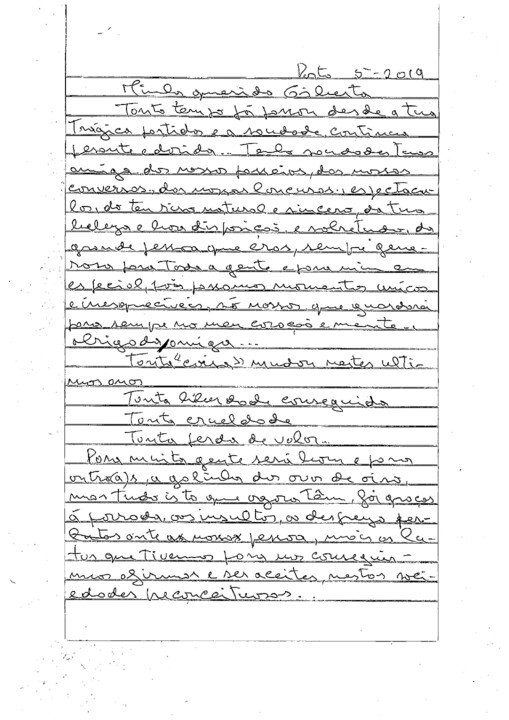 Porto 5-2019
Minha querida Gilberta
Tanto tempo já passou desde a tua
Trágica partida e a saudade, continua
perante e dorida... Tenho saudades Tuas
amiga, dos nossos passeios, das nossas
conversas, das nossas loucuras, espectacu-
los, do teu riso natural e sincero, da tua
beleza e boa disposição e sobretudo, da
grande pessoa que eras, sempre gene-
rosa para Toda a gente e para mim em
especial, pois passamos momentos únicos
e inesquecíveis, só nossos que guardarei
para sempre no meu coração e mente..
obrigada, amiga...
Tanta "coisa" mudou nestes ulti-
mos anos
Tanta liberdade conseguida
Tanta crueldade
Tanta perda de valor..
Para muita gente será bom e para
outro(a)s, a galinha dos ovos de oiro,
mas tudo isto que agora Têm, foi graças
á porrada, aos insultos, ao desprezo
ante as nossas pessoa, mais as lu-
tas que Tivemos para nos conseguir-
mos afirmar e ser aceites, nestas soci-
edades preconceituosas...